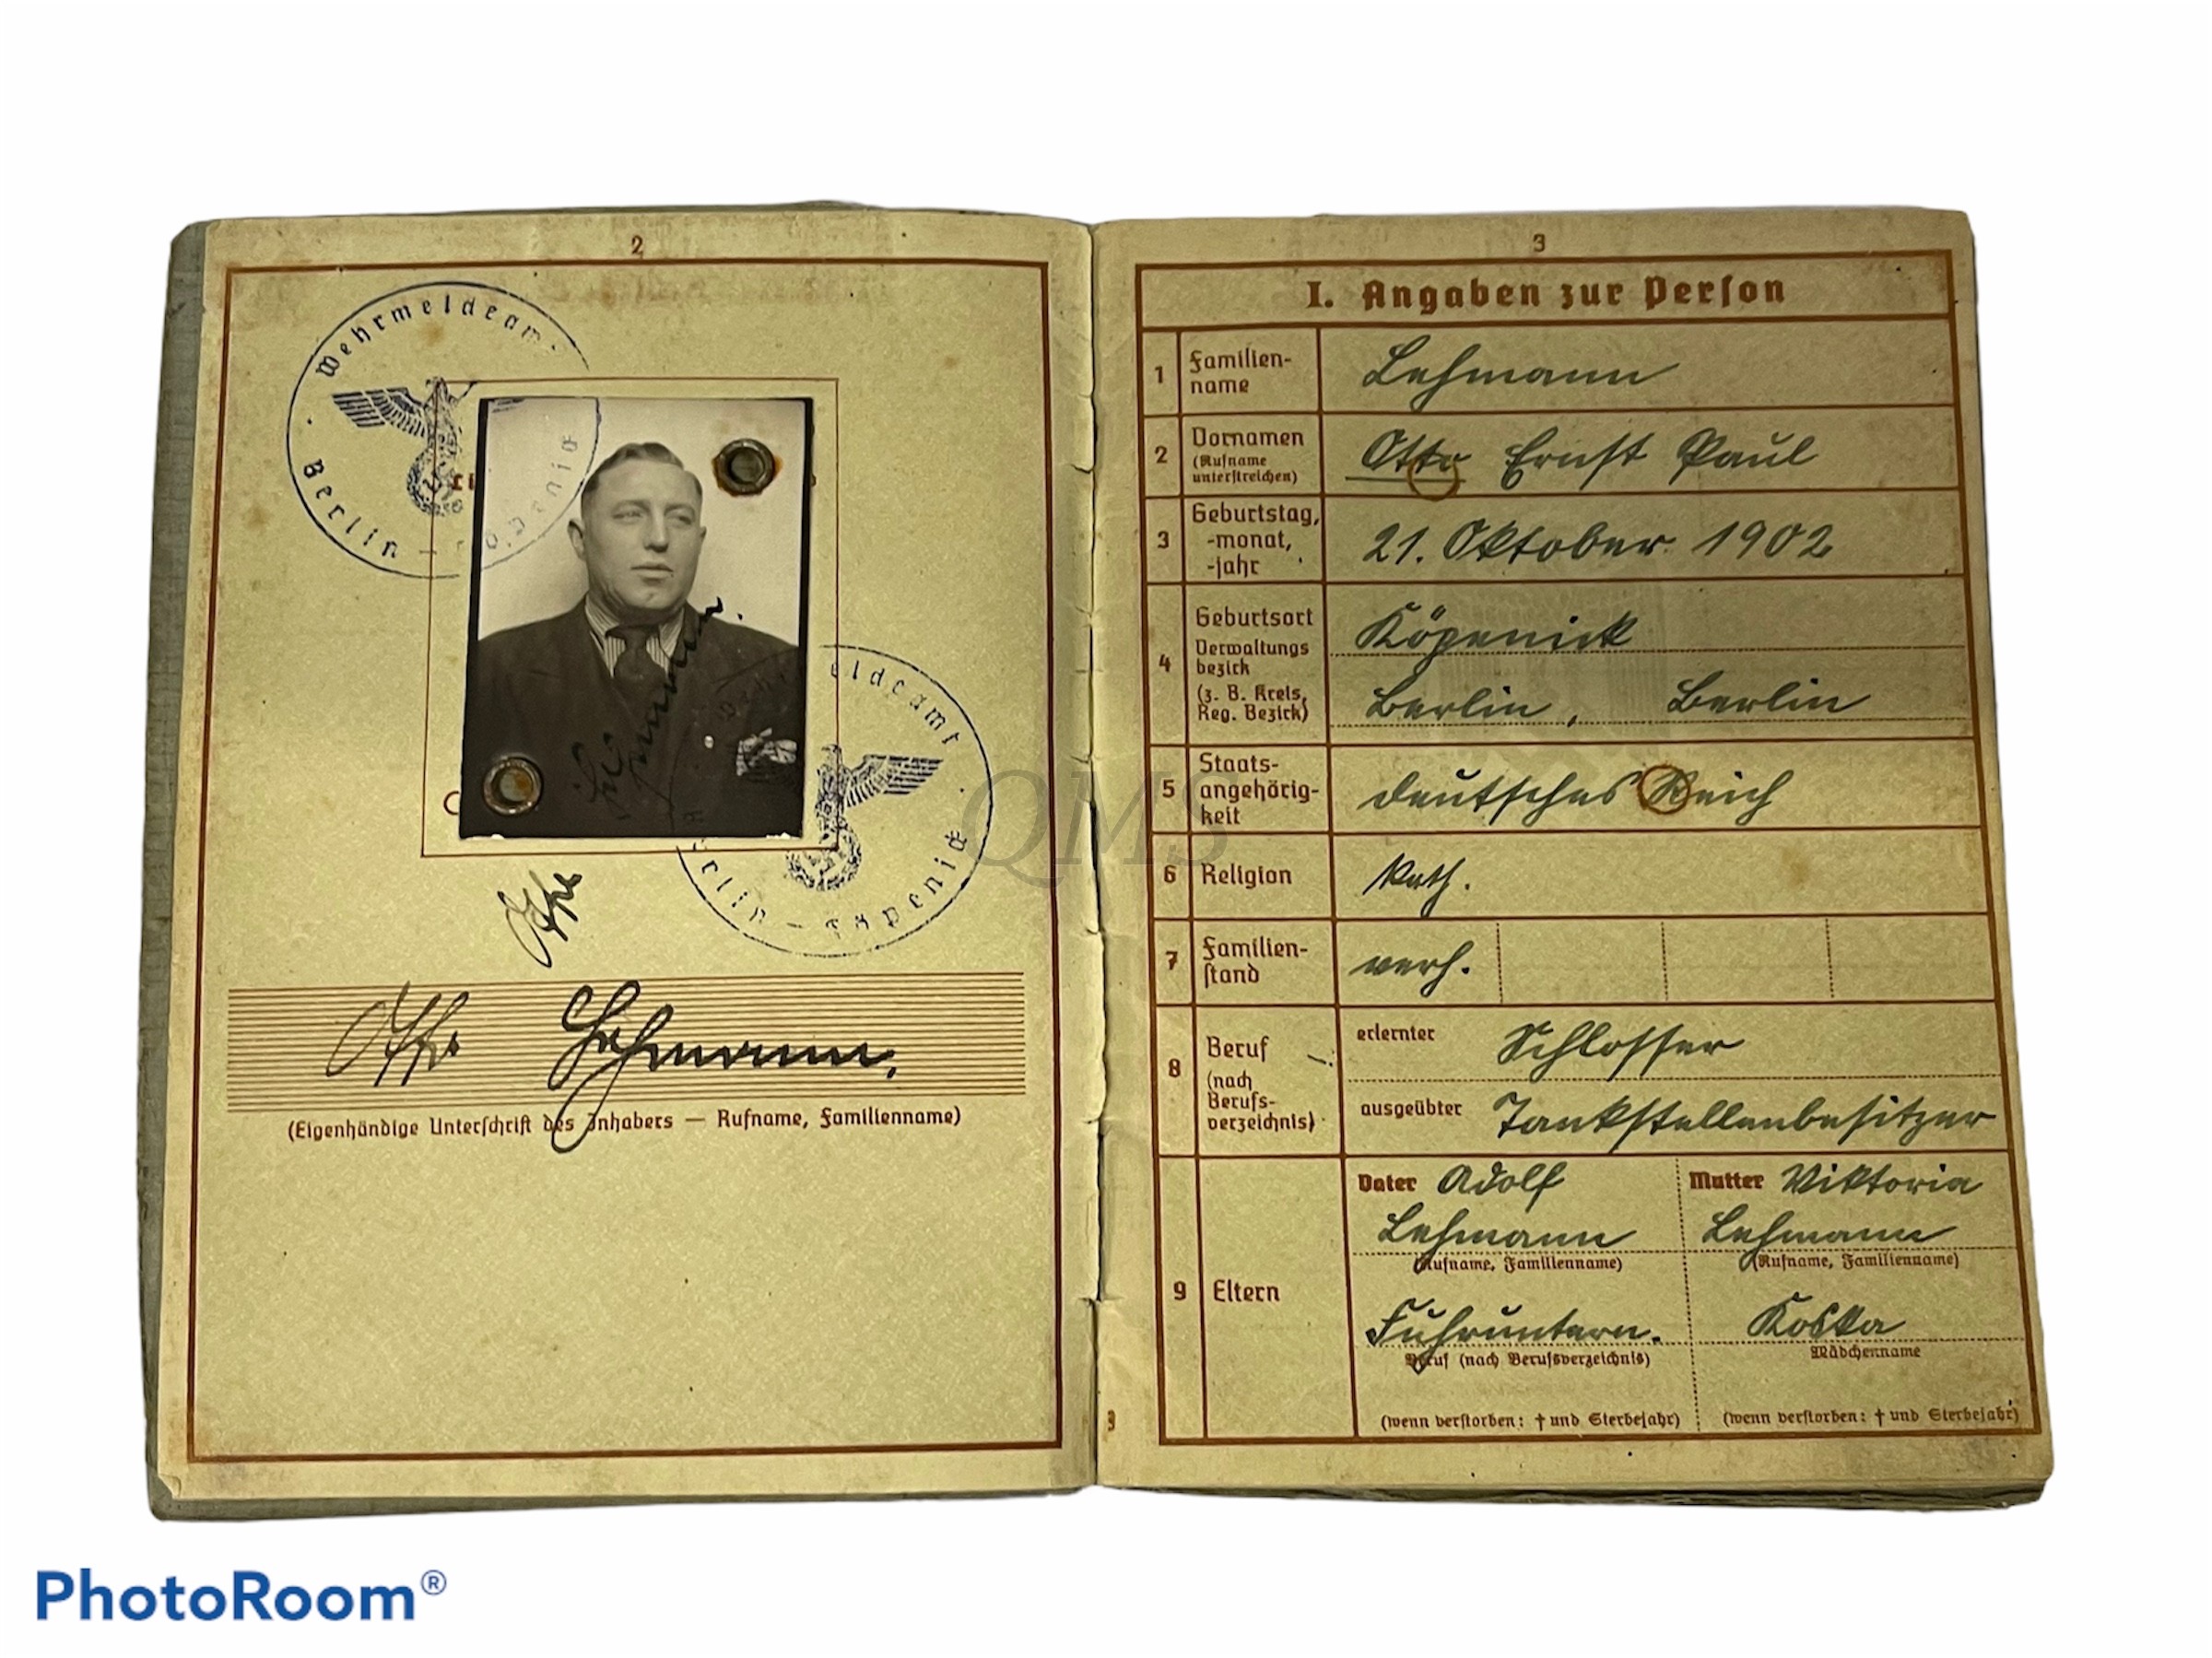 2
Wehrmeldeamt
Berlin - Köpenick
Lehmann.
Wehrmeldeamt
Berlin - Köpenick
Otto
Otto Lehmann.
(Eigenhändige Unterschrift des Inhabers — Rufname, Familienname)
3
I. Angaben zur Person
1 Familien-
name
Lehmann
2 Vornamen
(Rufname
unterstreichen)
Otto Ernst Paul
3 Geburtstag,
-monat,
-jahr
21. Oktober 1902
4 Geburtsort
Verwaltungs
bezirk
(z. B. Kreis,
Reg. Bezirk)
Köpenick
Berlin, Berlin
5 Staats-
angehörig-
keit
deutsches Reich
6 Religion
kath.
7 Familien-
stand
verh.
8 Beruf
(nach
Berufs-
verzeichnis)
erlernter Schlosser
ausgeübter Tankstellenbesitzer
9 Eltern
Vater Adolf
Lehmann
(Rufname, Familienname)
Fuhruntern.
Beruf (nach Berufsverzeichnis)
(wenn verstorben: † und Sterbejahr)
Mutter Viktoria
Lehmann
(Rufname, Familienname)
Koska
Mädchenname
(wenn verstorben: † und Sterbejahr)
3
QMS
PhotoRoom®